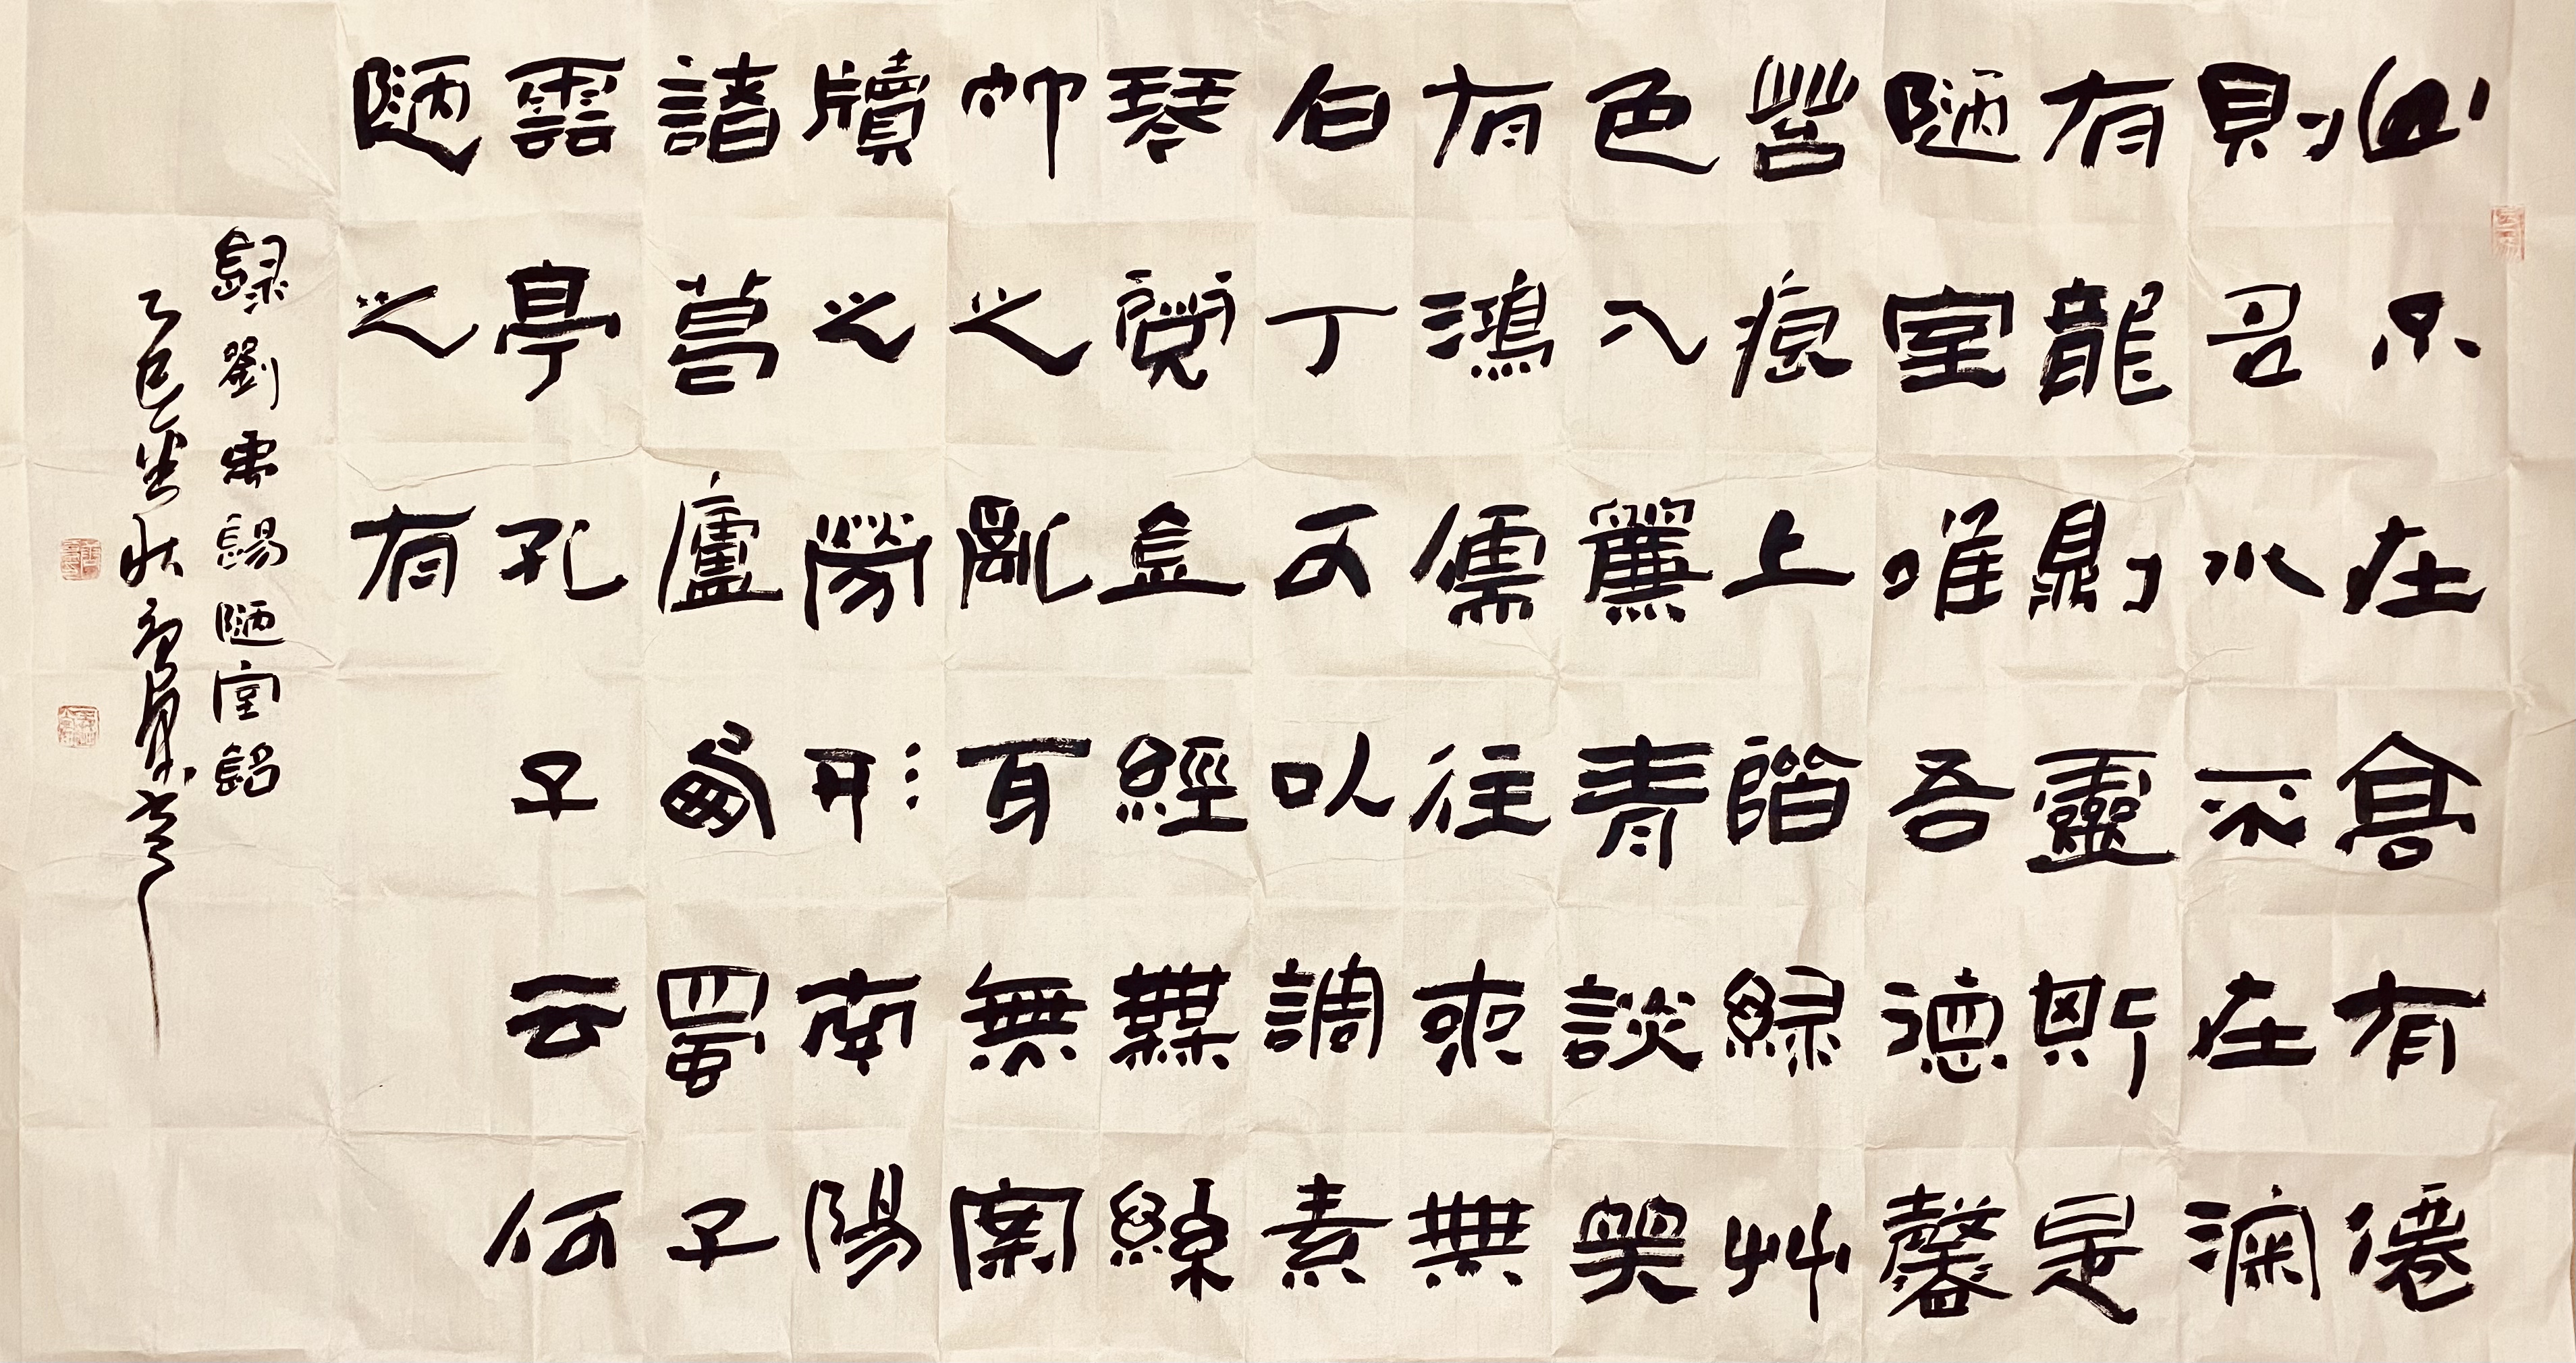 山不在高有僊
則名水不在深
有龍則靈斯是
陋室唯吾德馨
苔痕上階綠艸
色入簾青談笑
有鴻儒往來無
白丁可以調素
琴閱金經無絲
竹之亂耳無案
牘之勞形南陽
諸葛廬西蜀子
雲亭孔子云何
陋之有
錄劉禹錫陋室銘
乙巳金秋